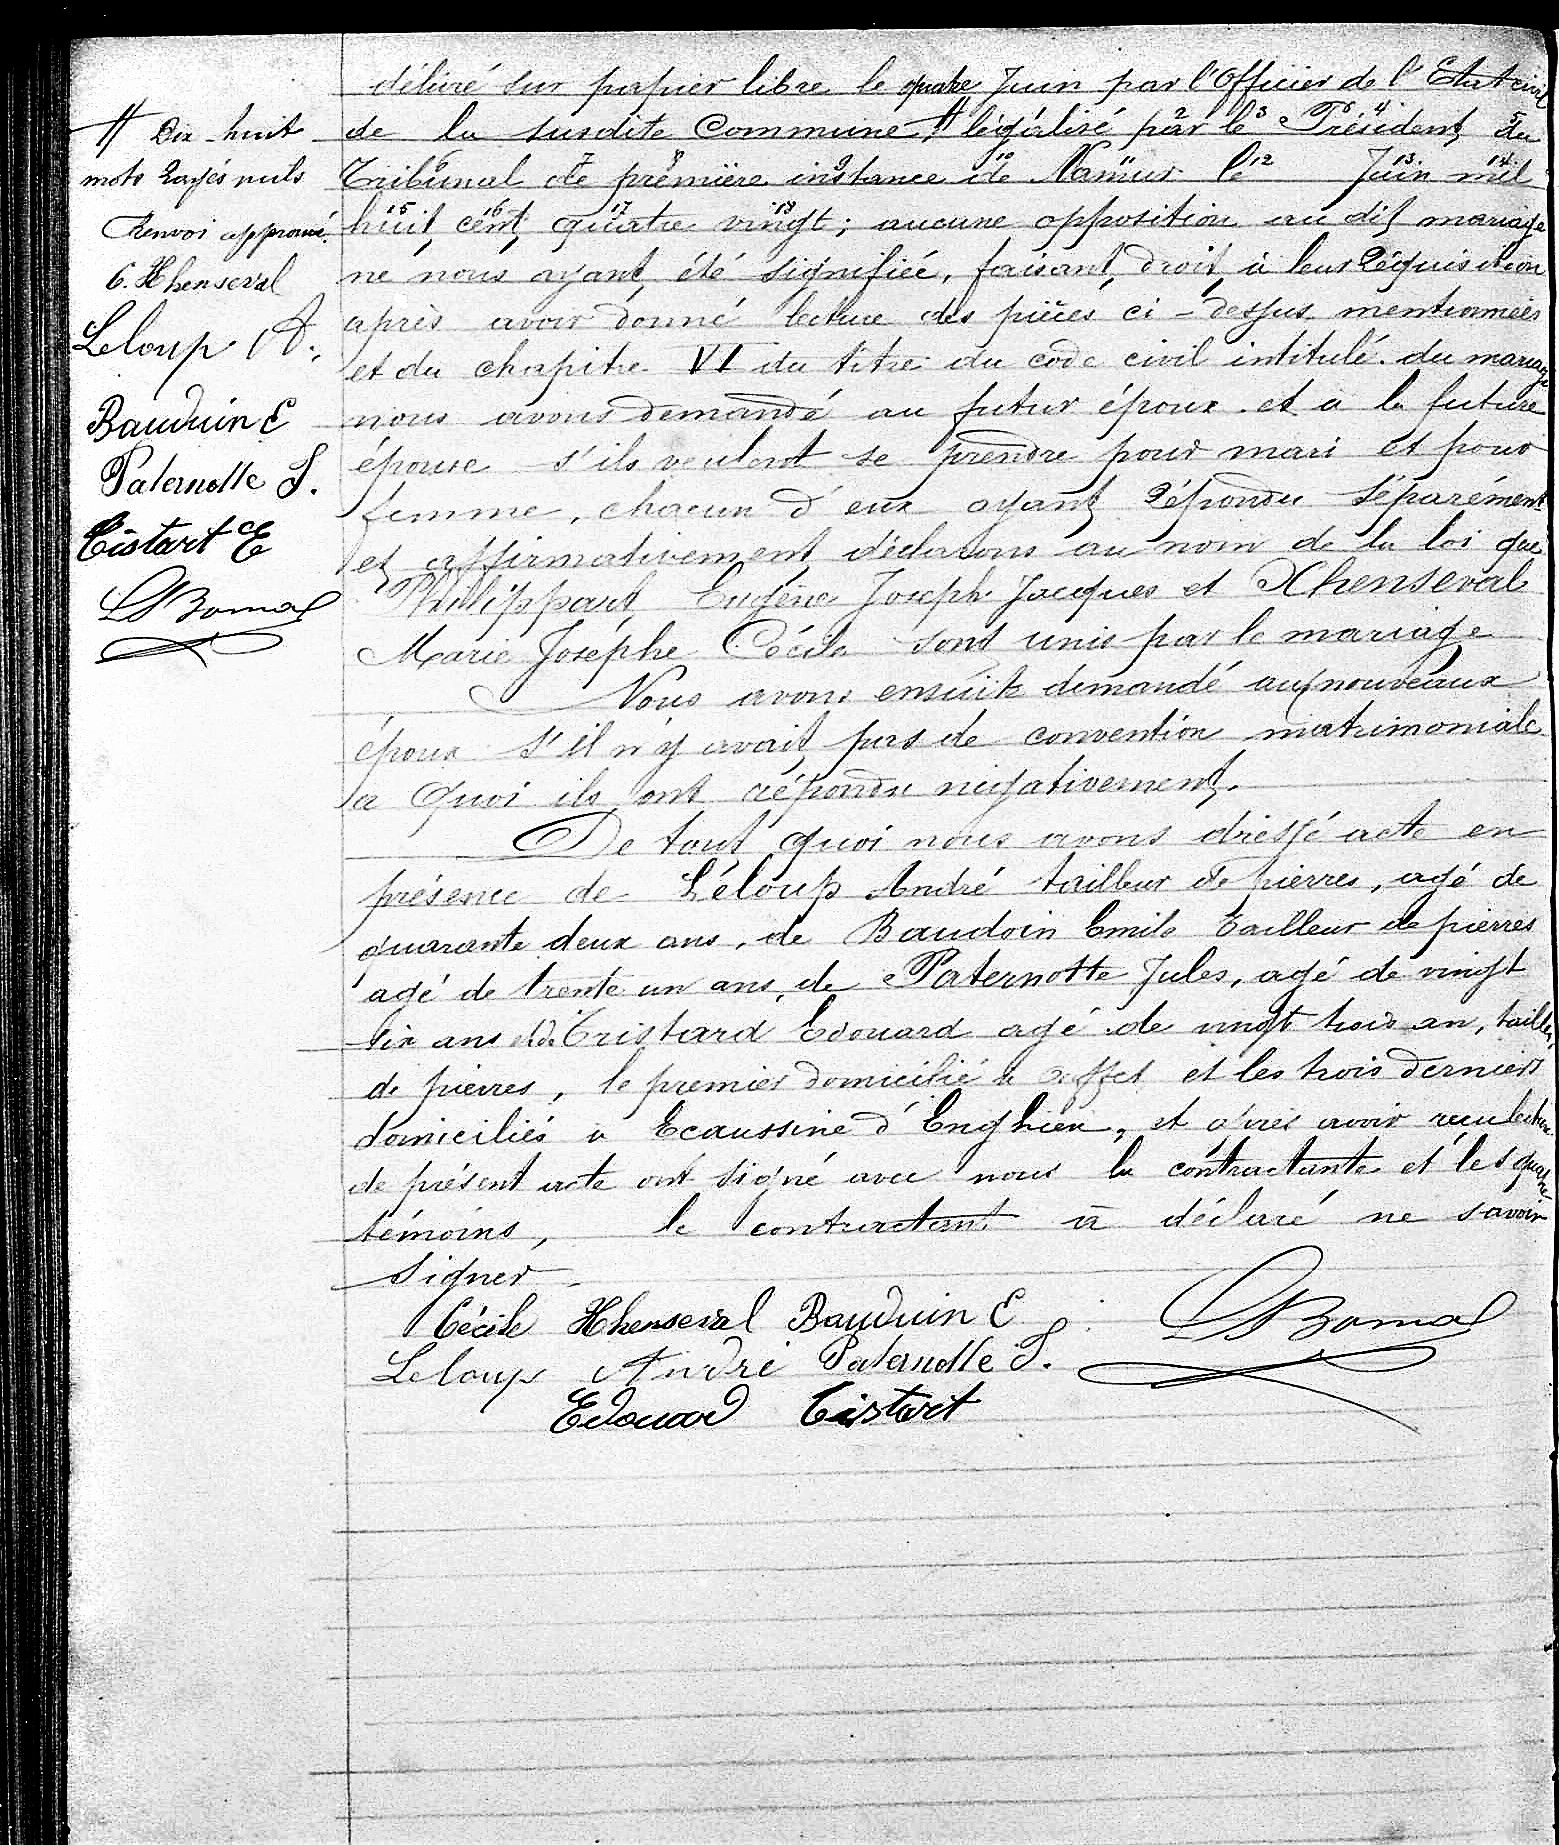 délivré sur papier libre le quatre Juin par l'Officier de l'Etat civil
de la susdite Commune # légalisé par le Président du
Tribunal de première instance de Namur le Juin mil
huit cent quatre vingt ; aucune opposition au dit mariage
ne nous ayant été signifiée, faisant droit à leur Réquisition
après avoir donné lecture des pièces ci-dessus mentionnées
et du chapitre VI du titre du code civil intitulé du mariage
nous avons demandé au futur époux et a la future
épouse s'ils veulent se prendre pour mari et pour
femme, chacun d'eux ayant Répondu Séparément
et affirmativement, déclarons au nom de la loi que
Philippart Eugène Joseph Jacques et Xhenseval
Marie Josèphe Cécile sont unis par le mariage
Nous avons ensuite demandé aux nouveaux
époux s'il n'y avait pas de convention matrimoniale
a Quoi ils ont répondu négativement.
De tout quoi nous avons dressé acte en
présence de Léloup André tailleur de pierres, agé de
quarante deux ans, de Baudoin Emile Tailleur de pierres
agé de trente un ans, de Paternotte Jules, agé de vingt
six ans et de Tristard Edouard agé de vingt trois an, tailleur
de pierres, le premier domicilié à et les trois derniers
domiciliés a Ecaussine d'Enghien, et après avoir reçu lecture
de présent acte ont signé avec nous la contractante et les quatre
témoins, le contractant a déclaré ne savoir
signer.
Cécile Xhenseval Bauduin E
Leloup André Paternotte J.
Edouard Tistart
# Dix-huit
mots rayés nuls
Renvoi approuvé.
C. Xhenseval
Leloup A.
Bauduin E
Paternotte J.
Tistart E